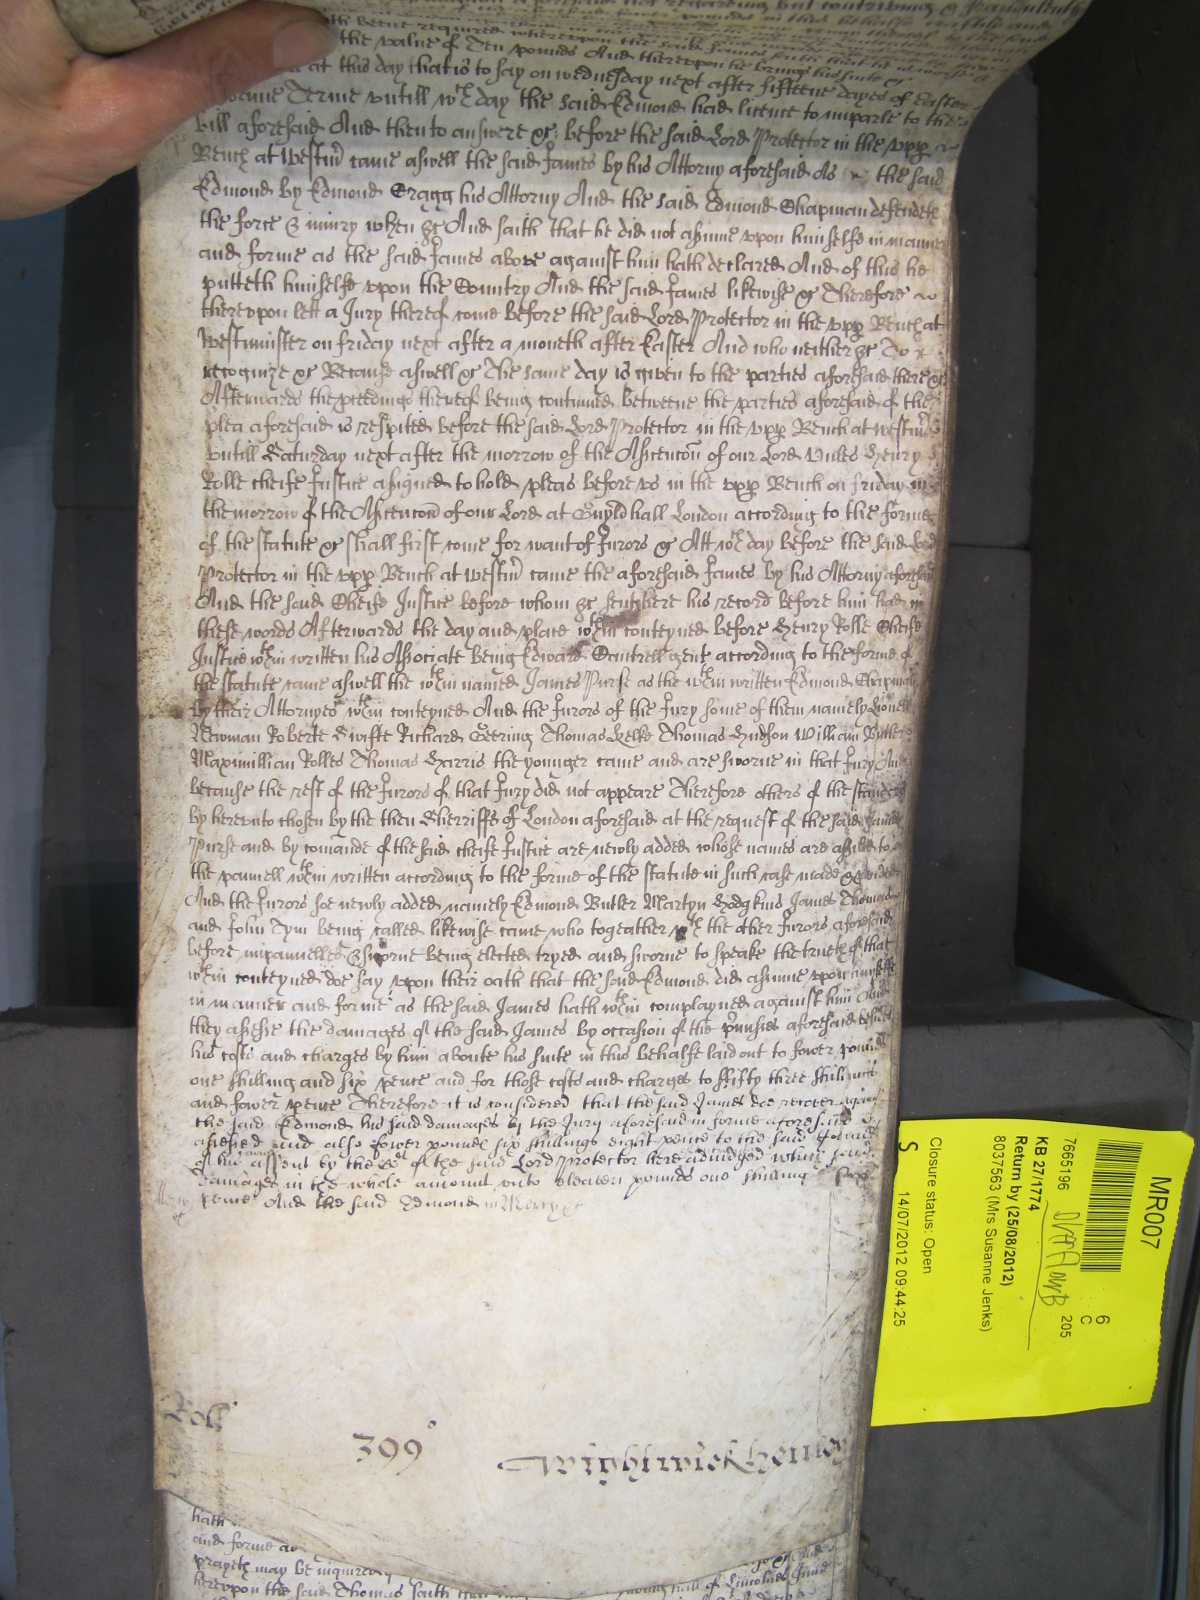 hath beene required whereupon the said James saith that he is
the value of Ten pounds And thereupon he brings his suite &c
at this day that is to say on wednesday next after fifteene dayes of Easter
Terme vntill wch day the said Edmond had licence to imparle to the
bill aforesaid And then to answere &c before the said Lord Protector in the vpp
Bench at Westm came aswell the said James by his Attorny aforesaid As the said
Edmond by Edmond Cragg his Attorny And the said Edmond Chapman defendeth
the force & iniury when &c And saith that he did not assume vpon himselfe in manner
and forme as the said James above against him hath declared And of this he
putteth himselfe vpon the Country And the said James likewise &c Therefore
therevpon lett a Jury thereof come before the said Lord Protector in the vpp Bench at
Westminster on friday next after a moneth after Easter And who neither &c To
recognize &c Because aswell &c The same day is given to the parties aforesaid there &c
Afterwards the pceedings thereof being continued betweene the parties aforesaid of the
plea aforesaid is respited before the said Lord Protector in the vpp Bench at Westm
vntill Saturday next after the morrow of the Ascencon of our Lord Vnles Henry
Rolle cheife Justice assigned to hold pleas before vs in the vpp Bench on friday
the morrow of the Ascencon of our Lord at Guyldhall London according to the forme
of the statute &c shall first come for want of Jurors &c Att wch day before the said Lord
Protector in the vpp Bench at Westm came the aforesaid James by his Attorny aforesaid
And the said Cheife Justice before whom &c sent here his record before him had in
these words Afterwards the day and place wthin conteyned before Henry Rolle Cheife
Justice wthin written his Associate being Edward Cantrell gent according to the forme of
the statute came aswell the wthin named James Purse as the wthin written Edmond Chapman
by their Attornyes wthin conteyned And the Jurors of the Jury some of them namely Lionell
Newman Roberte Swifte Richard Geering Thomas Leeke Thomas Hudson William Butler
Maximillian Rolles Thomas Harris the younger came and are sworne in that Jury And
because the rest of the Jurors of that Jury did not appeare Therefore others of the standers
by herevnto chosen by the then Sherriffs of London aforesaid at the request of the said James
Purse and by comande of the said cheife Justice are newly added whose names are to
the pannell wthin written according to the forme of the statute in such case made & pvided
And the Jurors soe newly added namely Edmond Butler Martyn Hodgkins James
and John Tym being called likewise came who togeather wth the other Jurors aforesaid
before impannelled & sworne being elected tryed and sworne to speake the trueth of that
wthin conteyned doe say vpon their oath that the said Edmond did assume vpon himselfe
in manner and forme as the said James hath wthin complayned against him And
they assesse the damages of the said James by occasion of the pmisses aforesaid besides
his costs and charges by him aboute his suite in this behalfe laid out to fower pounds
one shilling and six pence and for those costs and charges to ffifty three shillings
and fower pence Therefore it is considered that the said James doe recover against
the said Edmond his said damages by the Jury aforesaid in forme aforesaid
assessed and also fower pounds six shillings eight pence to the said James
of his assent by the Cort of the said Lord Protector here adiudged which said
damages in the whole amount vnto eleaven pounds one shilling six
pence And the said Edmond in Mercy &c
Roll
399
Wightwick
hath
and forme as
prayeth may be inquired
herevpon the said Thomas saith that
MR007
6
C
205
7665196
KB 27/1774
Return by (25/08/2012)
8037563 (Mrs Susanne Jenks)
Closure status: Open
S
14/07/2012 09:44:25